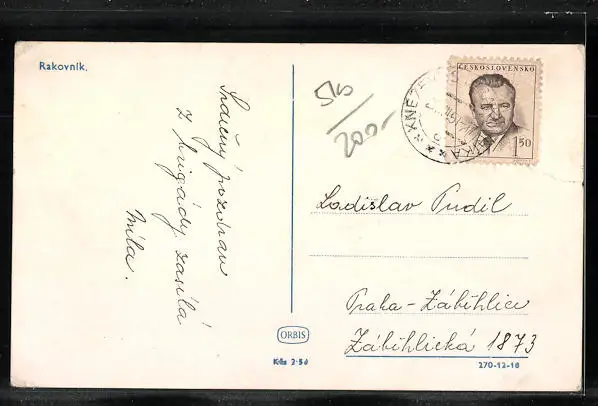 Rakovník.
Srdečný pozdrav
z brigády zasílá
Míla.
510/200-
ČESKOSLOVENSKO
1.50
KNĚŽEVES
Ladislav Pudil
Praha-Záběhlice
Záběhlická 1873
ORBIS
Kčs 2·50
270-12-16